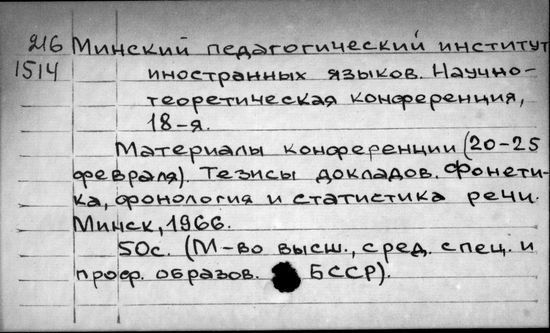 216 Минский педагогический институт
1514 иностранных языков. Научно-
теоретическая конференция,
18-я.
Материалы конференции (20-25
февраля). Тезисы докладов. Фонети-
ка, фонология и статистика речи.
Минск, 1966.
50с. (М-во высш., сред. спец. и
проф. образов. БССР).